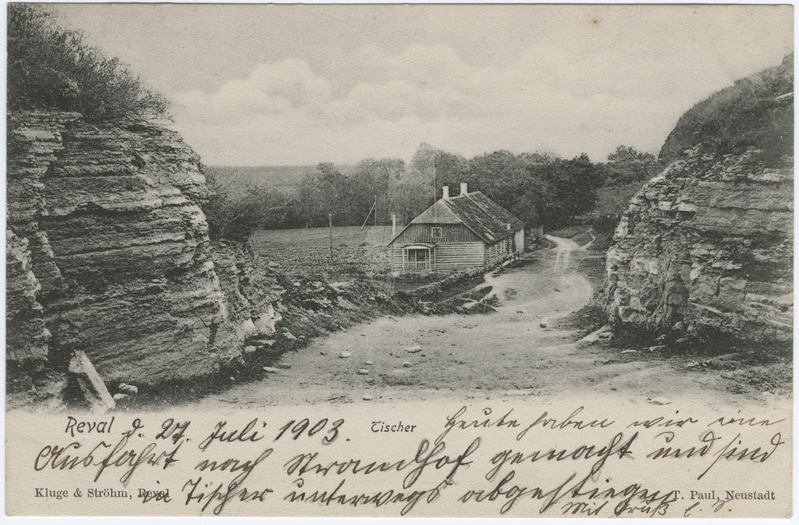 Reval d. 27. Juli 1903. Tischer Heute haben wir eine
Ausfahrt nach Strandhof gemacht und sind
Kluge & Ströhm, Reval in Tischer unterwegs abgestiegen. T. Paul, Neustadt
Mit Gruß